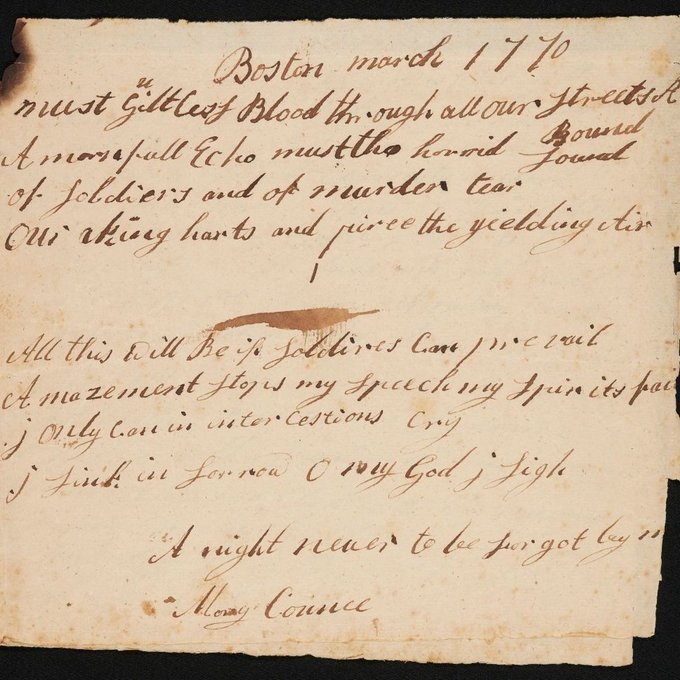 Boston march 1770
must Giltless Blood through all our Streets
u
A mornfull Echo must the horrid Sound
Bound
of Soldiers and of murder tear
Our aking harts and pirce the yielding Air
All this will Be if Soldires Can prevail
Amazement stops my speech my spirits
j Only can in intercestions Cry
j Sink in Sorrow O my God j Sigh
A night never to be forgot by